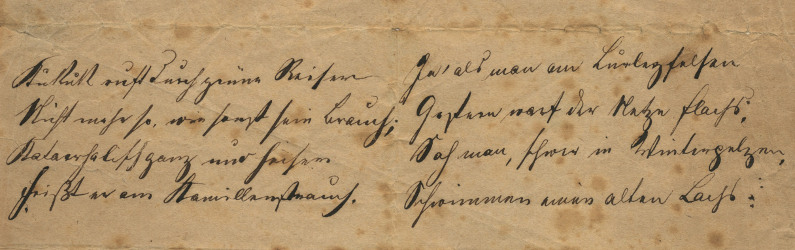 Kukuk ruft durch grüne Reiser
Nicht mehr so, wie sonst sein Brauch;
Katarrhalisch ganz und heiser
sitzt er am Kamillenstrauch.
Ja, als man am Lurleyfelsen
Gestern warf der Netze Flachs,
Sah man, schwer in Winterpelzen,
Schwimmen einen alten Lachs